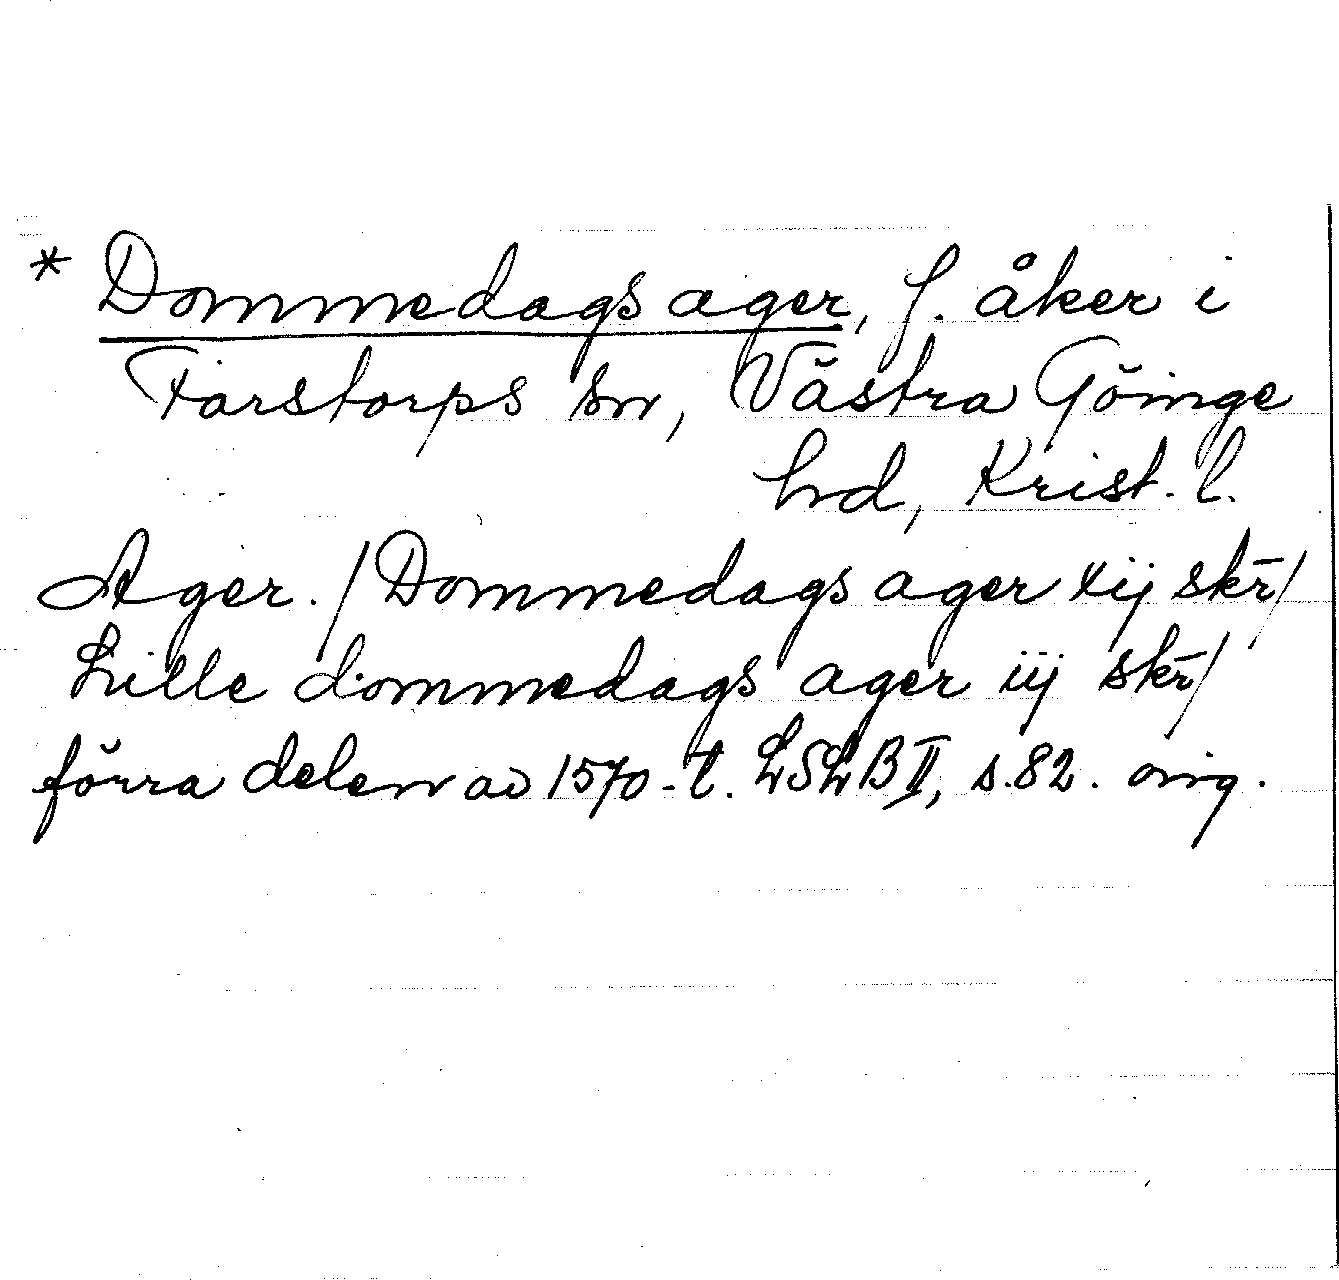 * Dommedags ager, f. åker i
Farstorps sn, Västra Göinge
hd, Krist. l.
Ager. / Dommedags ager xij skr̄ /
Lille dommedags ager iij skr̄ /
förra delen av 1570-t. LSLB II, s. 82. orig.